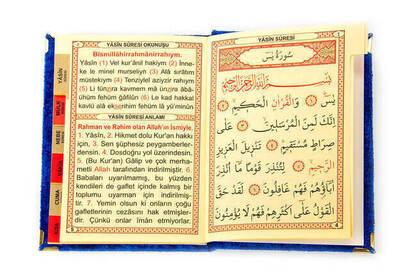 YÂSÎN SÛRESİ OKUNUŞU
Bismillâhirrahmânirrahym.
Yâsîn (1) Vel kur'ânil hakiym (2) İnne-
ke le minel murseliyn (3) Alâ sırâtım
müstekiym (4) Tenziylel aziyzir rahiym
(5) Li tünzira kavmem mâ ünzira âbâ-
ühüm fehüm ğâfilûn (6) Le kad hakkal
kavlü alâ ekserihim fehüm lâ yü'minûn
YÂSÎN SÛRESİ ANLAMI
Rahman ve Rahim olan Allah'ın İsmiyle.
1. Yâsîn, 2. Hikmet dolu Kur'an hakkı
için, 3. Sen şüphesiz peygamberler-
densin. 4. Dosdoğru yol üzerindesin.
5. (Bu Kur'an) Gâlip ve çok merha-
metli Allah tarafından indirilmiştir. 6.
Babaları uyarılmamış, bu yüzden
kendileri de gaflet içinde kalmış bir
toplumu uyarman için indirilmiş-
tir. 7. Yemin olsun ki onların çoğu
gafletlerinin cezasını hak etmişler-
dir. Çünkü onlar îman etmiyorlar.
YÂSÎN
MÜLK
NEBE
CUMA
YÂSÎN SÛRESİ
سورة يس
بسم الله الرحمن الرحيم
يس ﴿١﴾ وَالْقُرْآنِ الْحَكِيمِ ﴿٢﴾
إِنَّكَ لَمِنَ الْمُرْسَلِينَ ﴿٣﴾ عَلَى
صِرَاطٍ مُسْتَقِيمٍ ﴿٤﴾ تَنْزِيلَ الْعَزِيزِ
الرَّحِيمِ ﴿٥﴾ لِتُنْذِرَ قَوْمًا مَا أُنْذِرَ
آبَاؤُهُمْ فَهُمْ غَافِلُونَ ﴿٦﴾ لَقَدْ حَقَّ
الْقَوْلُ عَلَى أَكْثَرِهِمْ فَهُمْ لَا يُؤْمِنُونَ